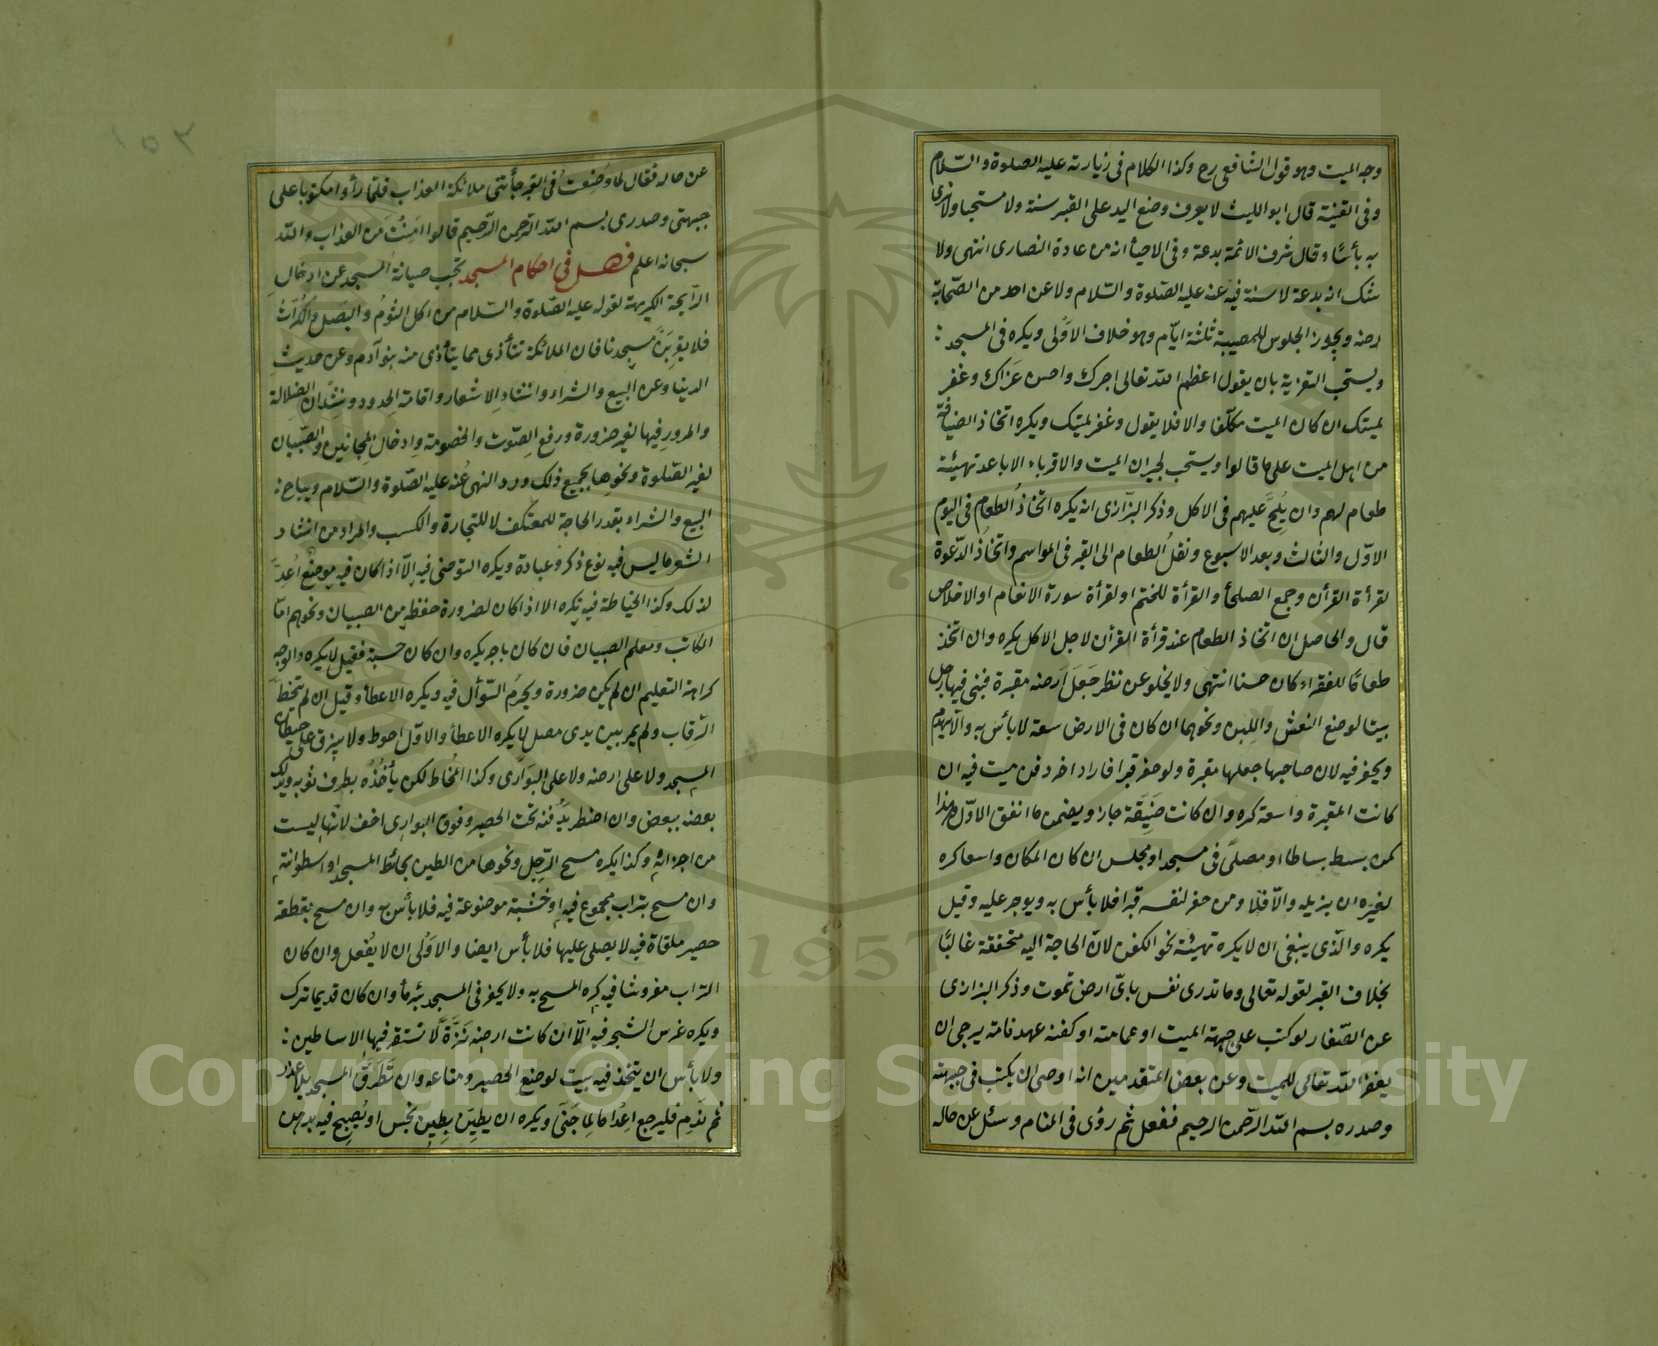 وجه الميت وهو قول الشافعى رح وكذا الكلام فى زيارته عليه الصلوة والسلام
وفى القنية قال ابو الليث لا يعرف وضع اليد على القبر سنة ولا مستحبا ولا نرى
به بأسًا وقال شرف الائمة بدعة وفى الاحياء انه من عادة النصارى انتهى ولا
شك انه بدعة لا سنة فيه عنه عليه الصلوة والسلام ولا عن احد من الصحابة
رضه ويجوز الجلوس للمصيبة ثلثة ايام وهو خلاف الاولى ويكره فى المسجد :
ويستحب التعزية بان يقول اعظم الله تعالى اجرك واحسن عزاك وغفر
لميتك ان كان الميت مكلفا والا فلا يقول وغفر لميتك ويكره اتخاذ الضيافة
من اهل الميت على ما قالوا ويستحب لجيران الميت والاقرباء الاباعد تهيئة
طعام لهم وان يُلِحّ عليهم فى الاكل وذكر البزازى انه يكره اتخاذُ الطعام فى اليوم
الاول والثالث وبعد الاسبوع ونقلُ الطعام الى القبر فى المواسم واتخاذُ الدعوة
لقرأة القرأن وجمع الصلحأ والقرأة للختم او لقرأة سورة الانعام او الاخلاص
قال والحاصل ان اتخاذ الطعام عند قرأة القرأن لاجل الاكل يكره وان اتخذ
طعامًا للفقراء كان حسنا انتهى ولا يخلو عن نظر جَعَلَ ارضه مقبرة فبنى فيها رجل
بيتا لوضع النعش واللبن ونحوهما ان كان فى الارض سعة لا بأس به والا يهدم
ويحفر فيه لان صاحبها جعلها مقبرة ولو حفر قبرا فاراد اخر دفن ميت فيه ان
كانت المقبرة واسعة كره وان كانت ضَيِّقة جاز ويضمن ما انفق الاول وهذا
كمن بسط بساطا او مصلى فى مسجد او مجلس ان كان المكان واسعا كره
لغيره ان يزيله والا فلا ومن حفر لنفسه قبرا فلا بأس به ويوجر عليه وقيل
يكره والذى ينبغى ان لا يكره تهيئة نحو الكفن لان الحاجة اليه متحققة غالبًا
بخلاف القبر لقوله تعالى وما تدرى نفس باىّ ارض تموت وذكر البزازى
عن الصفار لو كتب على جبهة الميت او عمامته او كفنه عهد نامه يرجى ان
يغفر الله تعالى للميت وعن بعض المتقدمين انه اوصى ان يكتب فى جبهته
وصدره بسم الله الرحمن الرحيم ففعل ثم رؤى فى المنام وسئل عن حاله
١٥٢
عن حاله فقال لما وُضِعتُ فى القبر جأتنى ملائكة العذاب فلما رأوا مكتوبا على
جبهتى وصدرى بسم الله الرحمن الرحيم قالوا امِنْتَ من العذاب والله
سبحانه اعلم فصل فى احكام المسجد تجب صيانة المسجد عن ادخال
الرايحة الكريهة لقوله عليه الصلوة والسلام من اكل الثوم والبصل والكراث
فلا يقربنّ مسجدنا فان الملائكة تتأذى مما يتأذى منه بنو آدم وعن حديث
الدنيا وعن البيع والشراء وانشاد الاشعار واقامة الحدود ونشدان الضلالة
والمرور فيها لغير ضرورة ورفع الصوت والخصومة وادخال المجانين والصبيان
لغير الصلوة ونحوها بجميع ذلك ورد النهى عنه عليه الصلوة والسلام ويباح :
البيع والشراء بقدر الحاجة للمعتكف لا للتجارة والكسب والمراد من انشاد
الشعر ما ليس فيه نوع ذكر وعبادة ويكره التوضى فيه الا اذا كان فيه موضع اُعدَّ
لذلك وكذا الخياطة فيه تكره الا اذا كان لضرورة حفظه من الصبيان ونحوهم اما
الكاتب ومعلم الصبيان فان كان باجر يكره وان كان حسبة فقيل لا يكره والوجه
كراهة التعليم ان لم يكن ضرورة ويحرم السؤال فيه ويكره الاعطأ وقيل ان لم يتخطّ
الرقاب ولم يمر بين يدى مصل لا يكره الاعطأ والاول احوط ولا يبزق على حيطان
المسجد ولا على ارضه ولا على البوارى وكذا المُخاط لكن يأخذه بطرف ثوبه ويدلك
بعضه ببعض وان اضطر يدفنه تحت الحصير وفوق البوارى اخف لانها ليست
من اجزائه وكذا يكره مسح الرجل ونحوها من الطين بحائط المسجد او اسطوانته
وان مسح بتراب مجموع فيه او خشبة موضوعة فيه فلا بأس به وان مسح بقطعة
حصير ملقاة فيه لا يصلى عليها فلا بأس ايضا والاولى ان لا يُفعل وان كان
التراب مفروشا فيه كره المسح به ولا يحفر فى المسجد بئر مأ وان كان قديما ترك
ويكره غرس الشجر فيه الا ان كانت ارضه نزَّة لا تستقر فيها الاساطين :
ولا بأس ان يتخذ فيه بيت لوضع الحصير ومتاعه وان تَطرَّقَ المسجد بلا عذر
ثم ندم فليرجع اعدامًا لما جَنَى ويكره ان يطيّن بطين نجس او يُصبح فيه بدهن
Copyright © King Saud University
1957